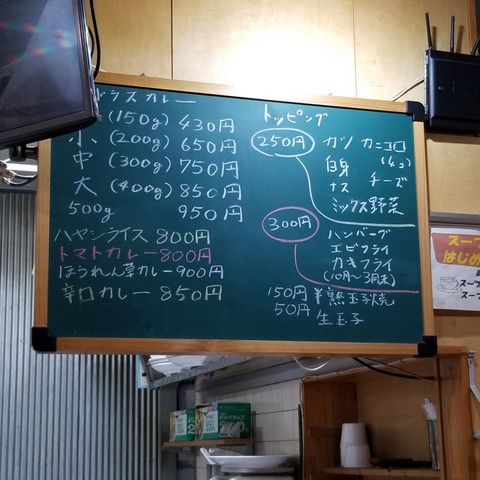 ドラスカレー
(150g) 430円
小 (200g) 650円
中 (300g) 750円
大 (400g) 850円
500g 950円
ハヤシライス 800円
トマトカレー 800円
ほうれん草カレー 900円
辛口カレー 850円
トッピング
250円
カツ カニコロ
白身 (4コ)
ナス チーズ
ミックス野菜
300円
ハンバーグ
エビフライ
カキフライ
(10月〜3月末)
150円 半熟玉子焼
50円 生玉子
スープ
はじめ
スープ
スープ